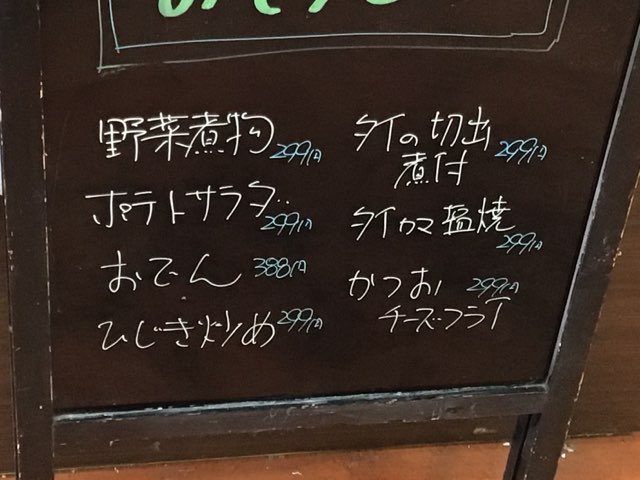 野菜煮物 299円
ポテトサラダ 299円
おでん 388円
ひじき炒め 299円
タイの切出 299円
煮付
タイカマ塩焼
299円
かつお 299円
チーズフライ